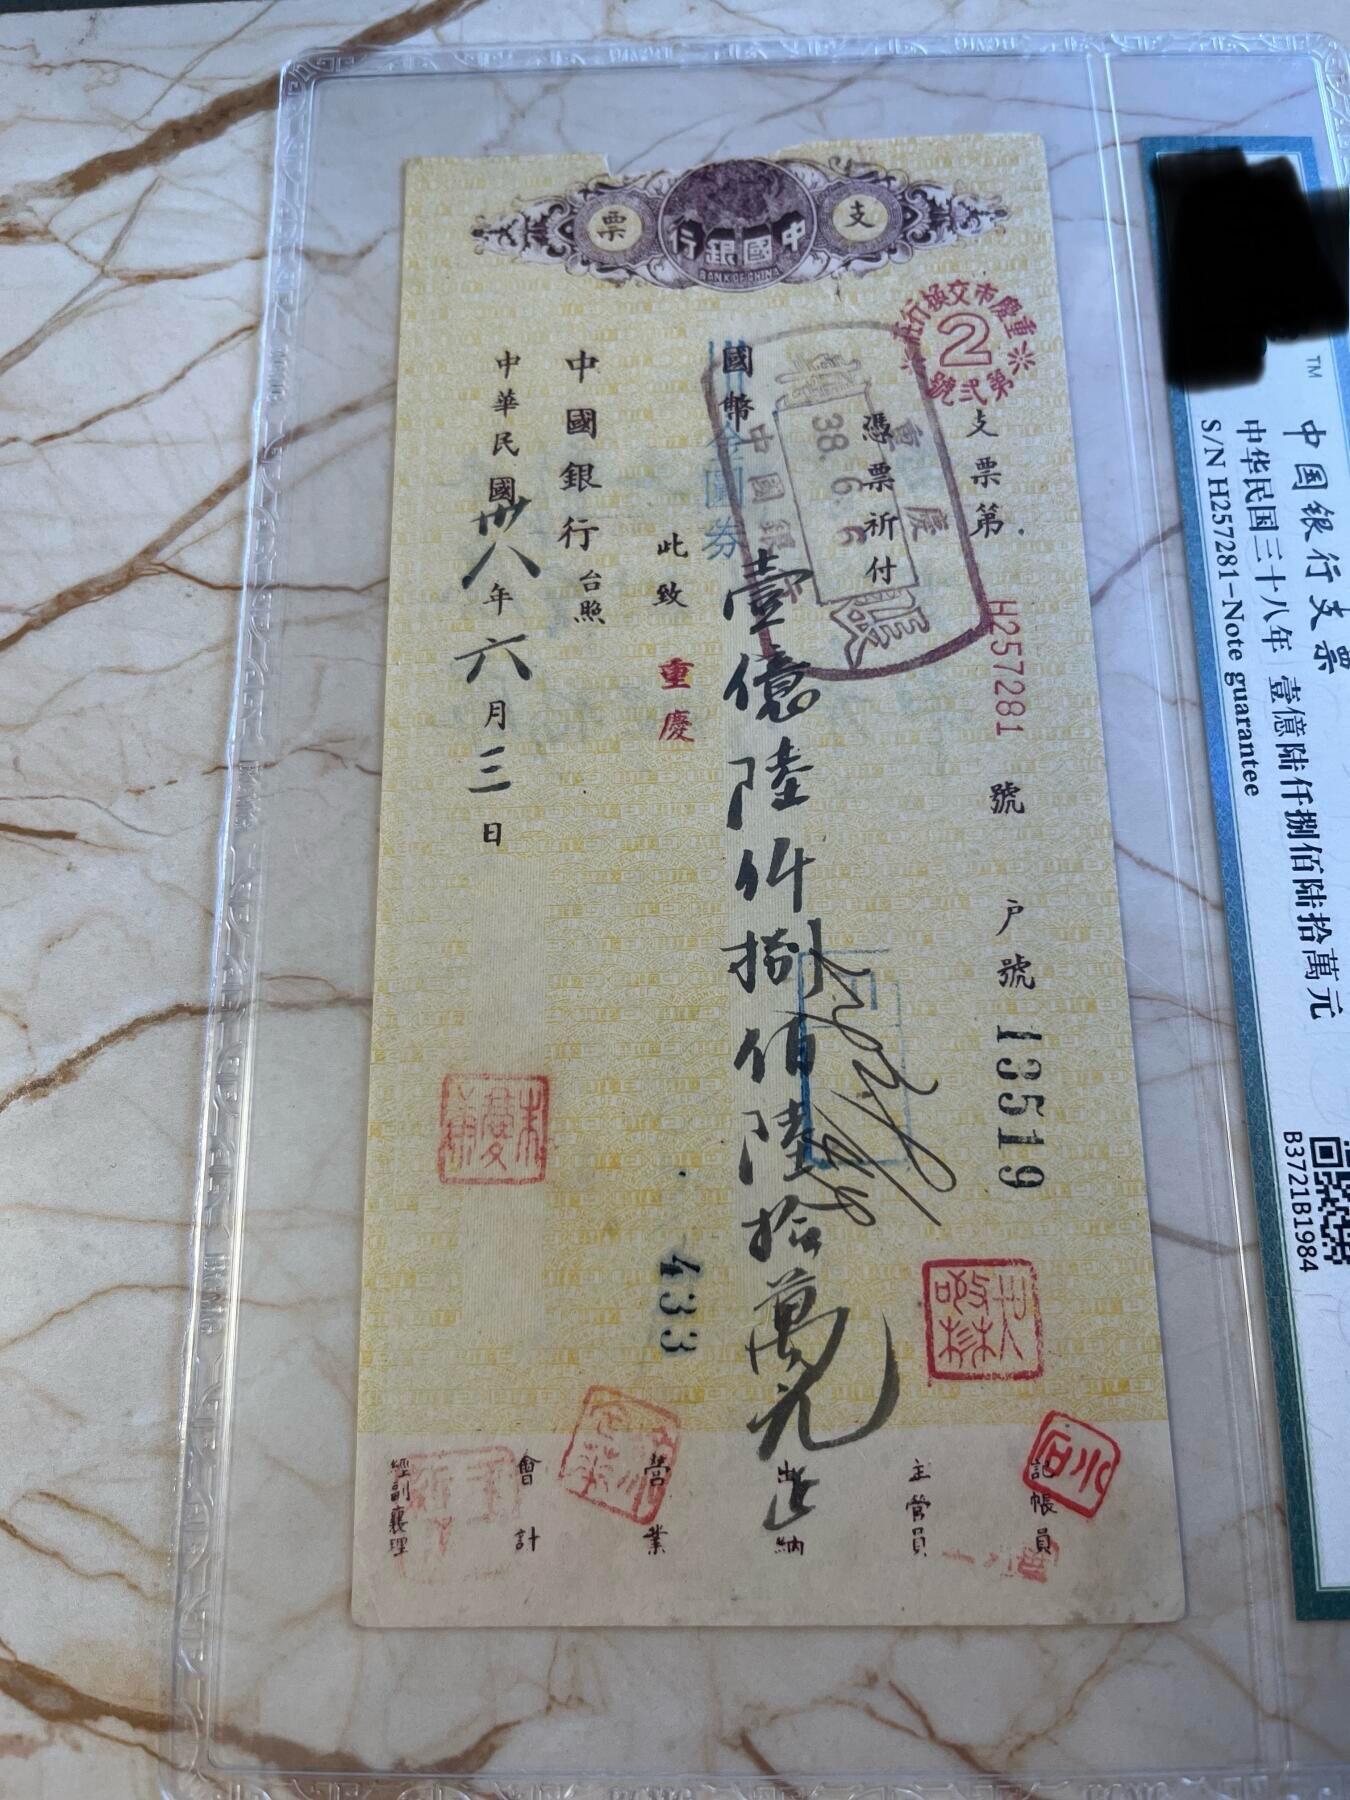 支票
中國銀行
BANK OF CHINA
重慶市交換行莊
2
第弍號
支票第 H257281 號 戶號 13519
憑票祈付
重慶
中國銀行
轉帳
38. 6. 6
國幣 金圓券 壹億陸仟捌佰陸拾萬元正
此致 重慶
433
中國銀行 台照
中華民國卅八年六月三日
朱慶
記帳員
主管員
出納
營業
會計
經副襄理
TM
中国银行支票
中华民国三十八年 壹億陆仟捌佰陆拾萬元
S/N H257281-Note guarantee
B3721B1984